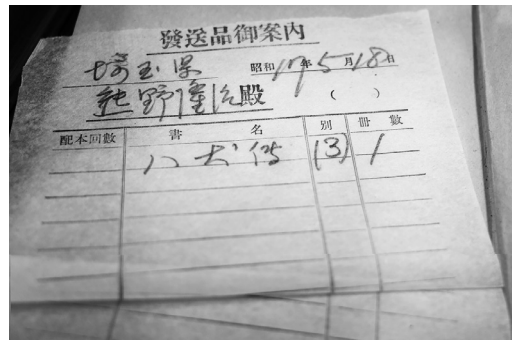 發送品御案內
埼玉県 昭和17年5月18日
熊野隆治殿 ( )
配本回數 書名 別 冊數
八犬伝 (3) 1